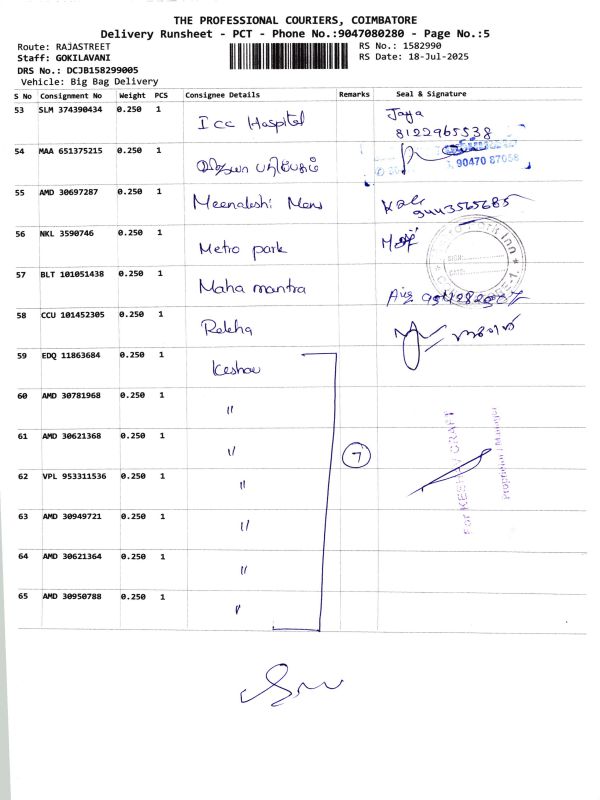 THE PROFESSIONAL COURIERS, COIMBATORE
Delivery Runsheet - PCT - Phone No.:9047080280 - Page No.:5
Route: RAJASTREET
RS No.: 1582990
Staff: GOKILAVANI
RS Date: 18-Jul-2025
DRS No.: DCJB158299005
Vehicle: Big Bag Delivery
S No Consignment No Weight PCS Consignee Details Remarks Seal & Signature
53 SLM 374390434 0.250 1 Icc Hospital Jaya
8122965538
54 MAA 651375215 0.250 1
90470 87058
55 AMD 30697287 0.250 1 Meenakshi Mens
9443565685
56 NKL 3590746 0.250 1 Metro park
Park Inn
SIGN:
DATE:
57 BLT 101051438 0.250 1 Maha mantra
58 CCU 101452305 0.250 1 Rekha
59 EDQ 11863684 0.250 1 Keshav
60 AMD 30781968 0.250 1 "
61 AMD 30621368 0.250 1 "
7
For KESHAV CRAFT
Proprietor / Manager
62 VPL 953311536 0.250 1 "
63 AMD 30949721 0.250 1 "
64 AMD 30621364 0.250 1 "
65 AMD 30950788 0.250 1 "